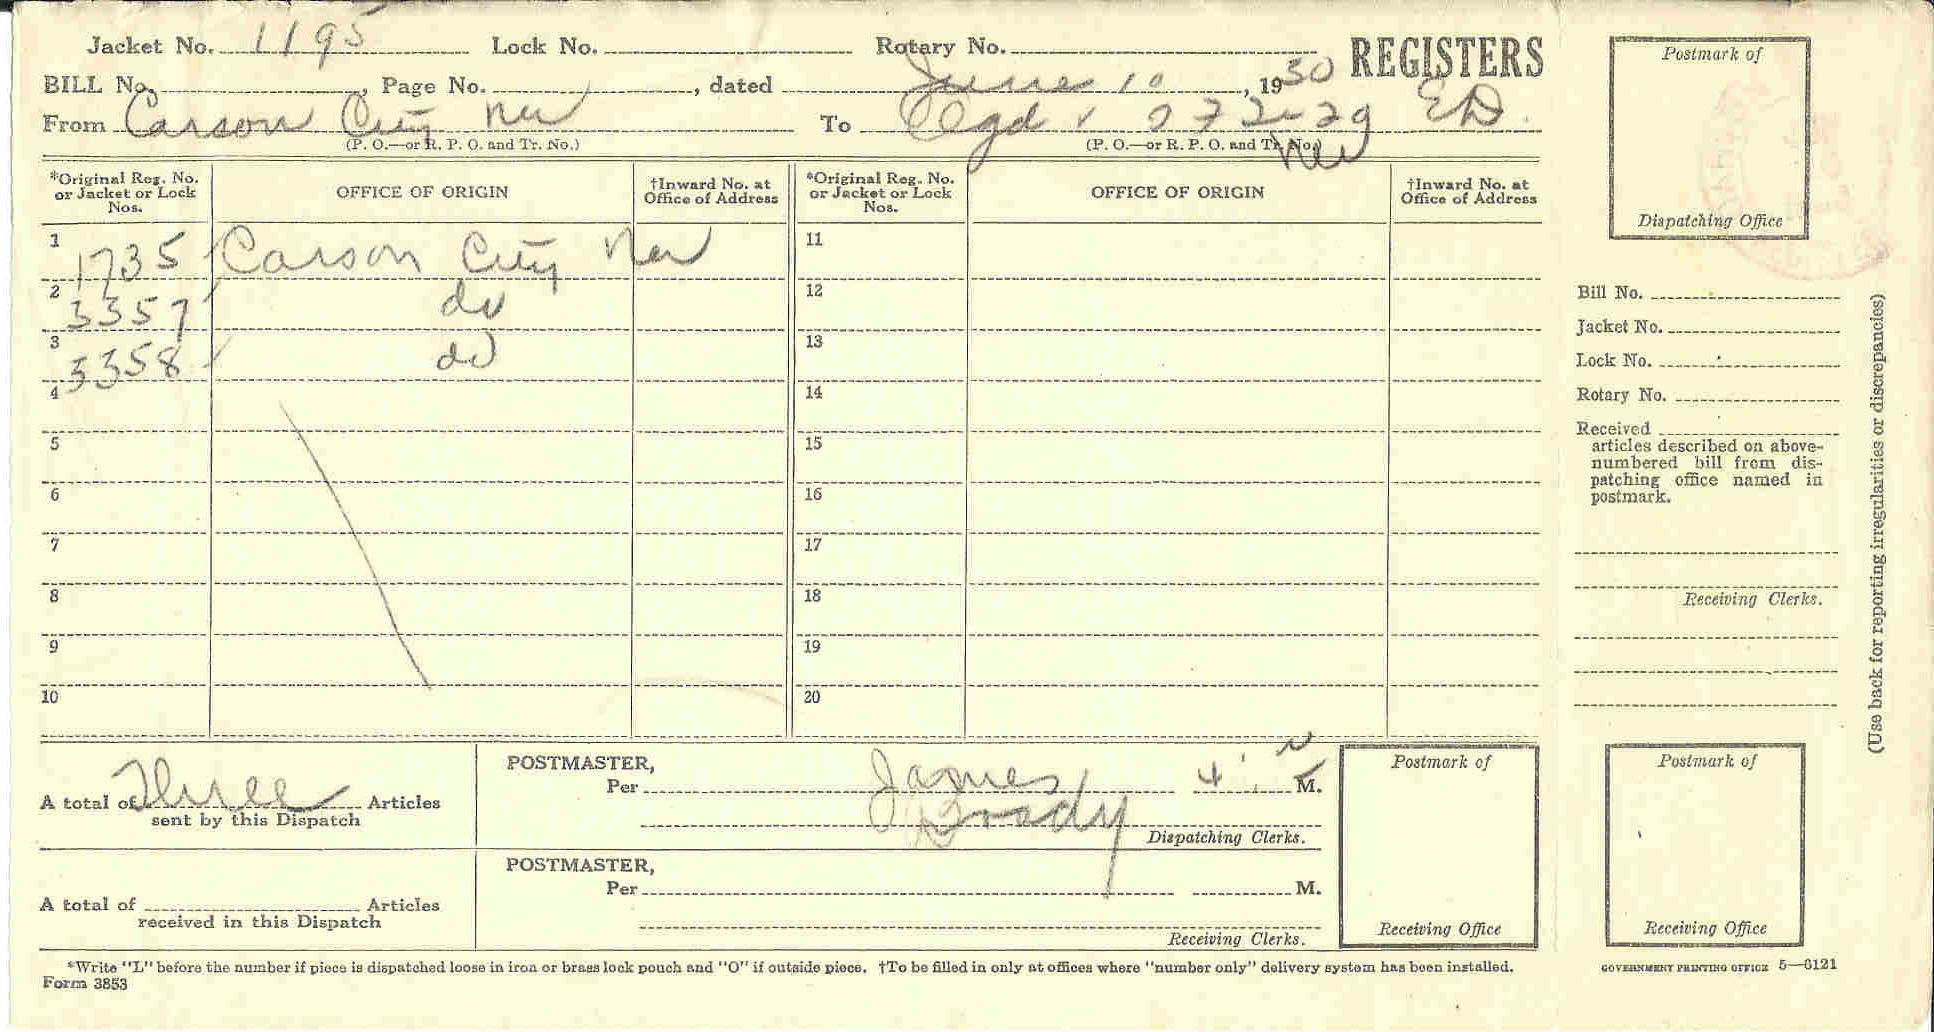 Jacket No. 1195 Lock No. Rotary No. REGISTERS
BILL No. , Page No. , dated June 10, 1930
From Carson City Nev To Ogd ED.
(P. O.—or R. P. O. and Tr. No.) (P. O.—or R. P. O. and Tr. No.)
*Original Reg. No. or Jacket or Lock Nos. OFFICE OF ORIGIN †Inward No. at Office of Address *Original Reg. No. or Jacket or Lock Nos. OFFICE OF ORIGIN †Inward No. at Office of Address
1 1735 Carson City Nev 11
2 3357 do 12
3 3358 do 13
4 14
5 15
6 16
7 17
8 18
9 19
10 20
A total of Three Articles
sent by this Dispatch
POSTMASTER,
Per James M.
Brady
Dispatching Clerks.
A total of Articles
received in this Dispatch
POSTMASTER,
Per M.
Receiving Clerks.
Postmark of
Receiving Office
*Write "L" before the number if piece is dispatched loose in iron or brass lock pouch and "O" if outside piece. †To be filled in only at offices where "number only" delivery system has been installed.
Form 3853
Postmark of
Dispatching Office
Bill No.
Jacket No.
Lock No.
Rotary No.
Received
articles described on above-
numbered bill from dis-
patching office named in
postmark.
Receiving Clerks.
Postmark of
Receiving Office
GOVERNMENT PRINTING OFFICE 5—6121
(Use back for reporting irregularities or discrepancies)